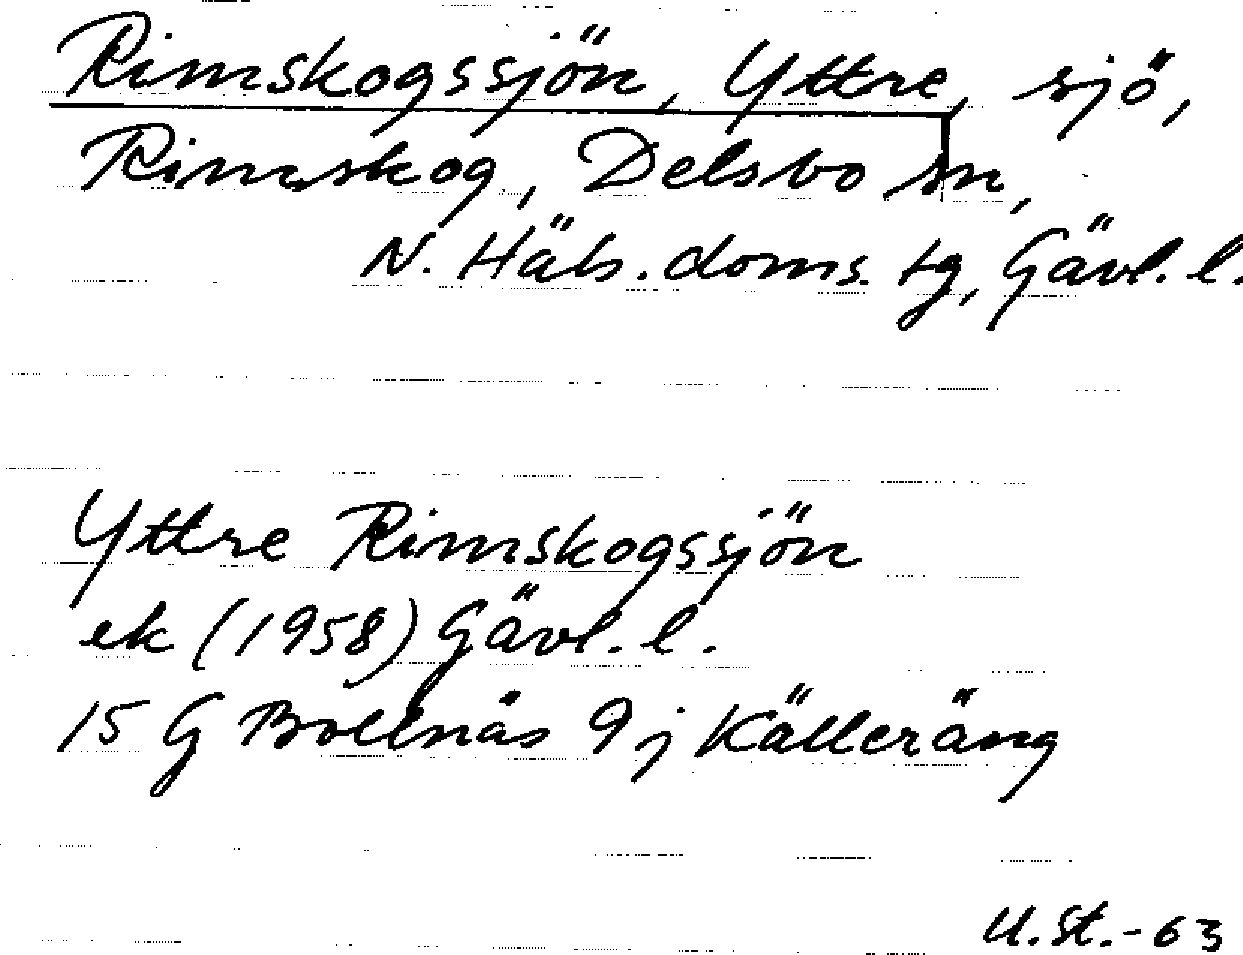 Rimskogssjön, Yttre, sjö,
Rimskog, Delsbo sn,
N. Häls. doms. tg, Gävl. l.
Yttre Rimskogssjön
ek (1958) Gävl. l.
15 G Bollnäs 9 j Källeräng
U. St. - 63